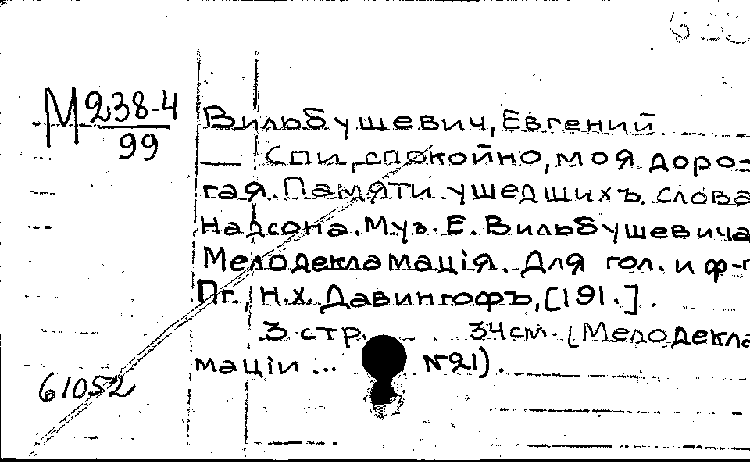 М 238-4
99
Вильбушевич, Евгений
— Спи, спокойно, моя доро-
гая. Памяти ушедшихъ. слова
Надсона. Муз. Е. Вильбушевича
Мелодекламація. Для гол. и ф-п
Пг., Н.Х. Давингофъ, [191.].
3 стр. 34 см. (Мелодекла
маціи ... №21).
61052